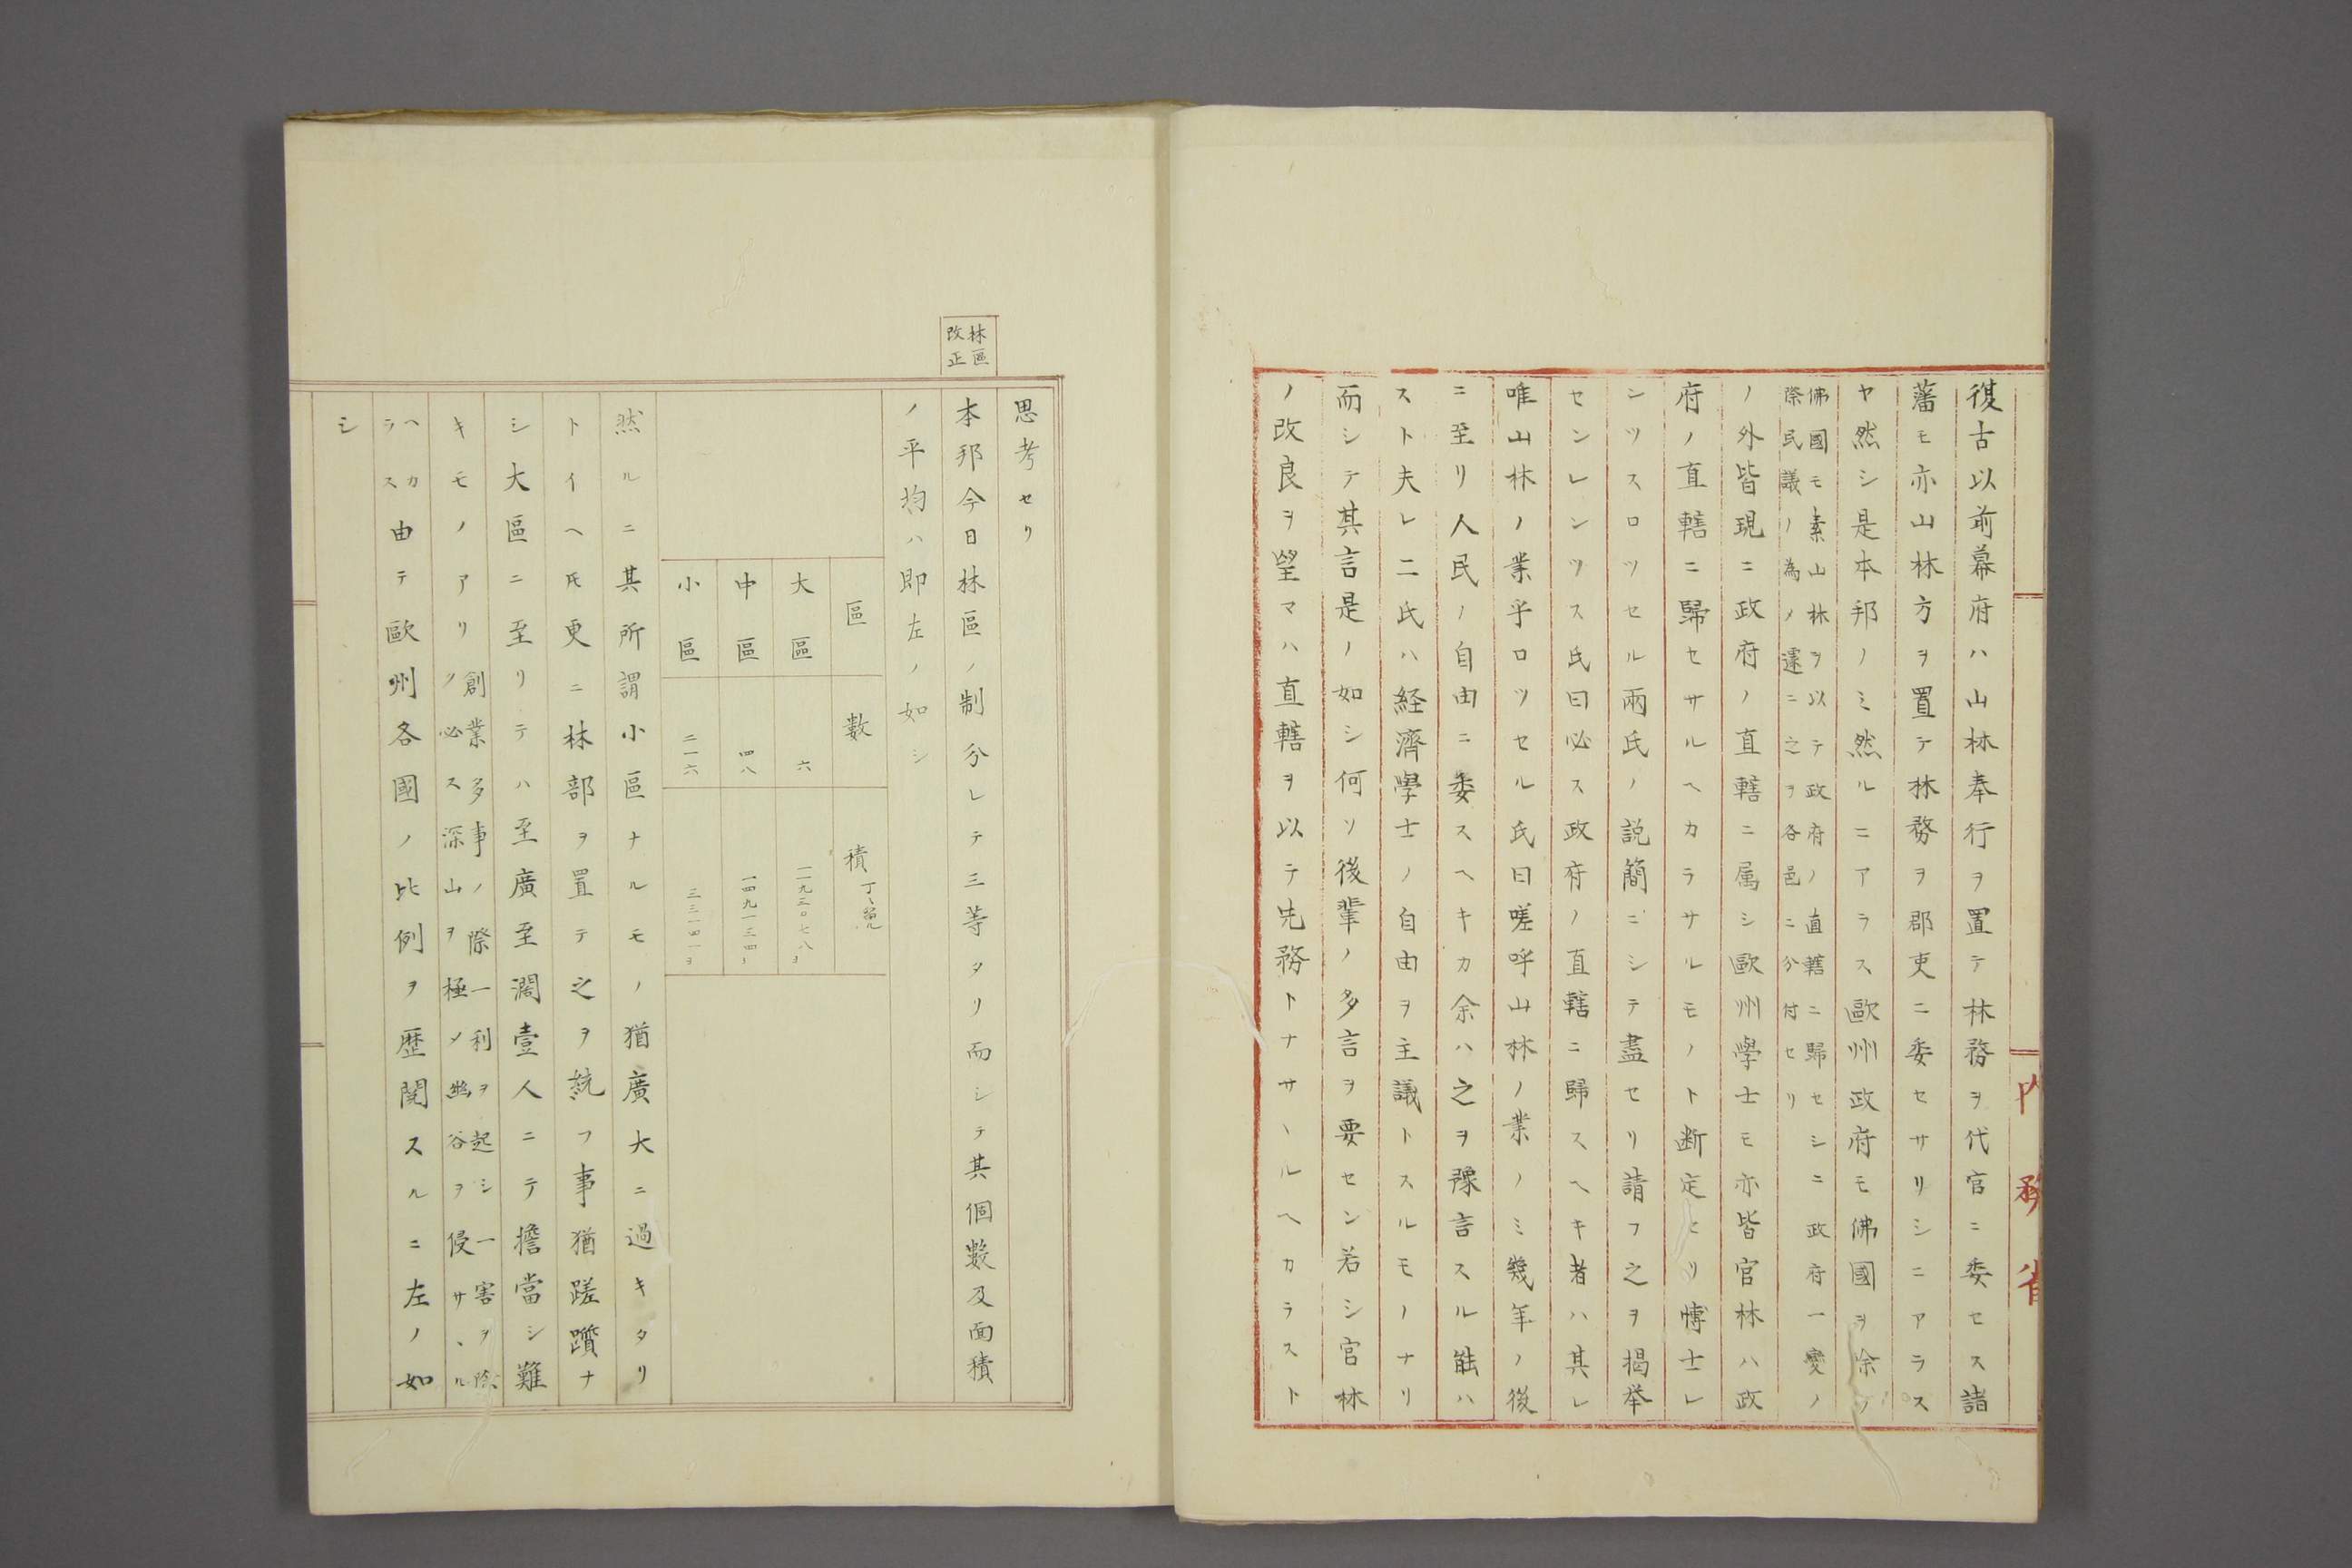 復古以前幕府ハ山林奉行ヲ置テ林務ヲ代官ニ委セス諸
藩モ亦山林方ヲ置テ林務ヲ郡吏ニ委セサリシニアラス
ヤ然シ是本邦ノミ然ルニアラス歐州政府モ佛國ヲ除ク
佛國モ素山林ヲ以テ政府ノ直轄ニ歸セシニ政府一變ノ
際民議ノ為メ遽ニ之ヲ各邑ニ分付セリ
ノ外皆現ニ政府ノ直轄ニ属シ歐州學士モ亦皆官林ハ政
府ノ直轄ニ歸セサルヘカラサルモノト断定セリ博士レ
ンツスロツセル兩氏ノ説簡ニシテ盡セリ請フ之ヲ掲挙
センレンツス氏曰必ス政府ノ直轄ニ歸スヘキ者ハ其レ
唯山林ノ業乎ロツセル氏曰嗟呼山林ノ業ノミ幾年ノ後
ニ至リ人民ノ自由ニ委スヘキカ余ハ之ヲ豫言スル能ハ
スト夫レ二氏ハ経濟學士ノ自由ヲ主議トスルモノナリ
而シテ其言是ノ如シ何ソ後輩ノ多言ヲ要セン若シ官林
ノ改良ヲ望マハ直轄ヲ以テ先務トナサヽルヘカラスト
内務省
思考セリ
林區
改正
本邦今日林區ノ制分レテ三等タリ而シテ其個數及面積
ノ平均ハ即左ノ如シ
區 數 積
大區 六 一一九三〇七八
中區 四八 一四九一三四
小區 二一六 三三一四一
然ルニ其所謂小區ナルモノ猶廣大ニ過キタリ
トイヘ𪜈更ニ林部ヲ置テ之ヲ統フ事猶蹉躓ナ
シ大區ニ至リテハ至廣至濶壹人ニテ擔當シ難
キモノアリ
創業多事ノ際一利ヲ起シ一害ヲ除
ク必ス深山ヲ極メ幽谷ヲ侵サヽル
ヘカ
ラス
由テ歐州各國ノ比例ヲ歴閲スルニ左ノ如
シ